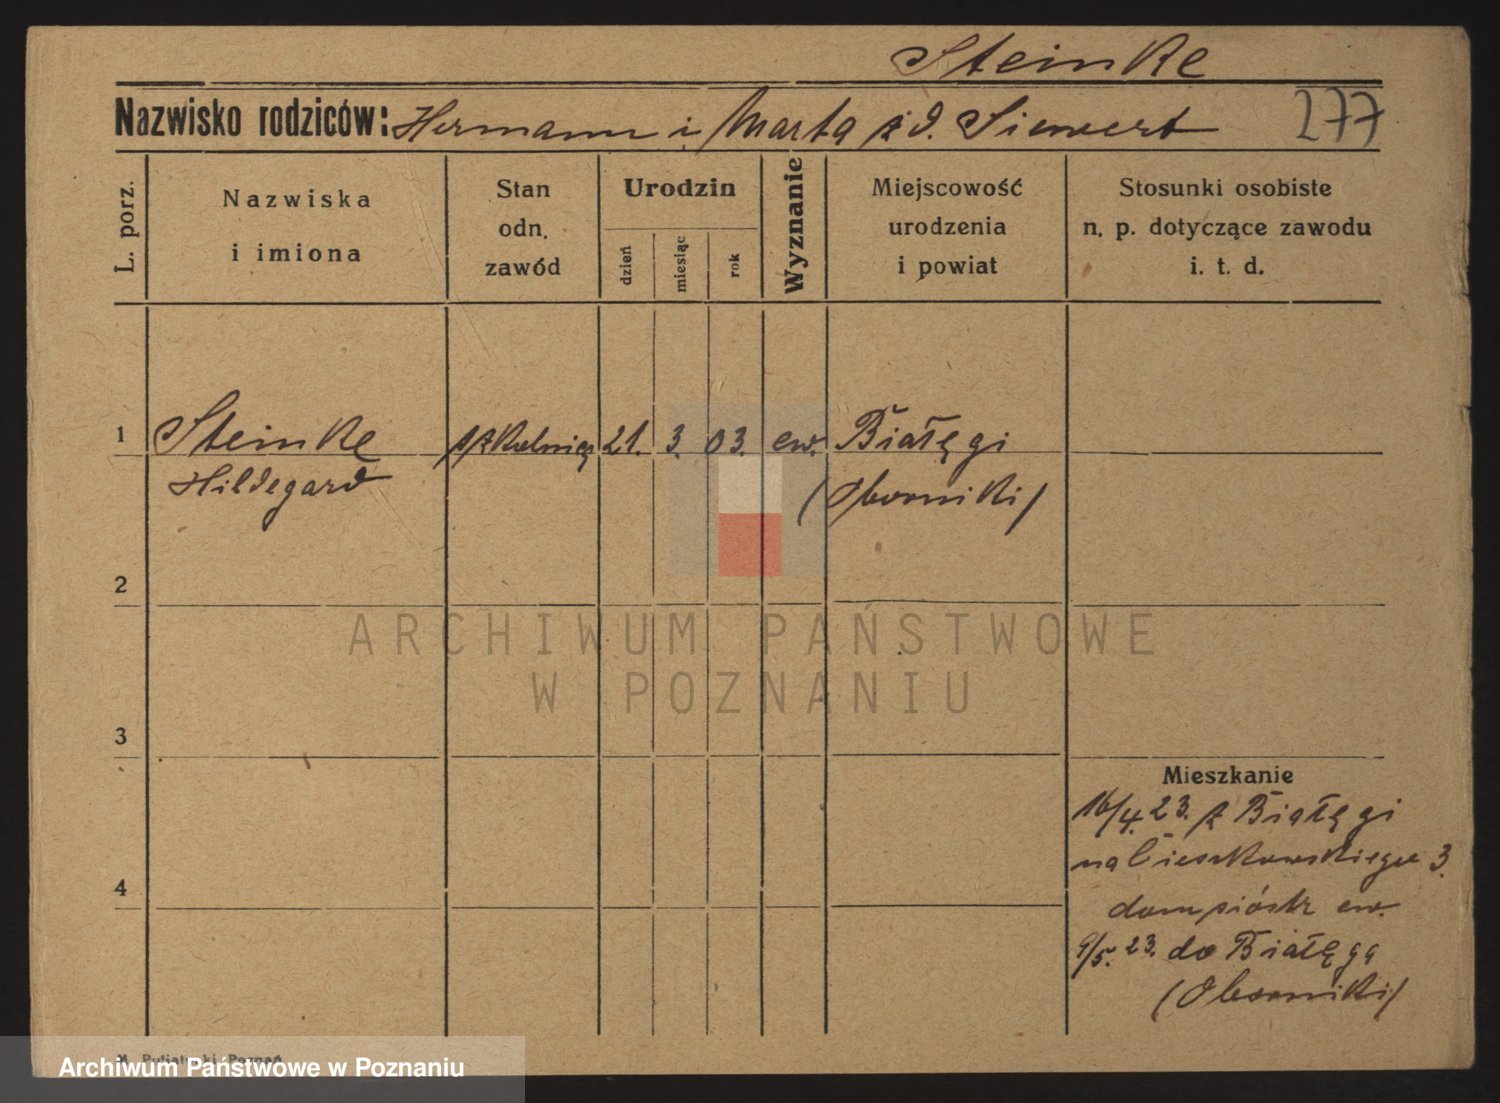 Steinke
Nazwisko rodziców: Hermann i Marta z d. Siewert 277
L. porz.
Nazwiska
i imiona
Stan
odn.
zawód
Urodzin
dzień
miesiąc
rok
Wyznanie
Miejscowość
urodzenia
i powiat
Stosunki osobiste
n. p. dotyczące zawodu
i. t. d.
1 Steinke 21. 3. 03. ew. Białęgi
Hildegard (Oborniki)
2
ARCHIWUM PAŃSTWOWE
W POZNANIU
3
Mieszkanie
16/4. 23. z Białęgi
na Cieszkowskiego 3.
4
dom sióstr ew.
9/5. 23. do Białęgą
(Oborniki)
Poznań
Archiwum Państwowe w Poznaniu